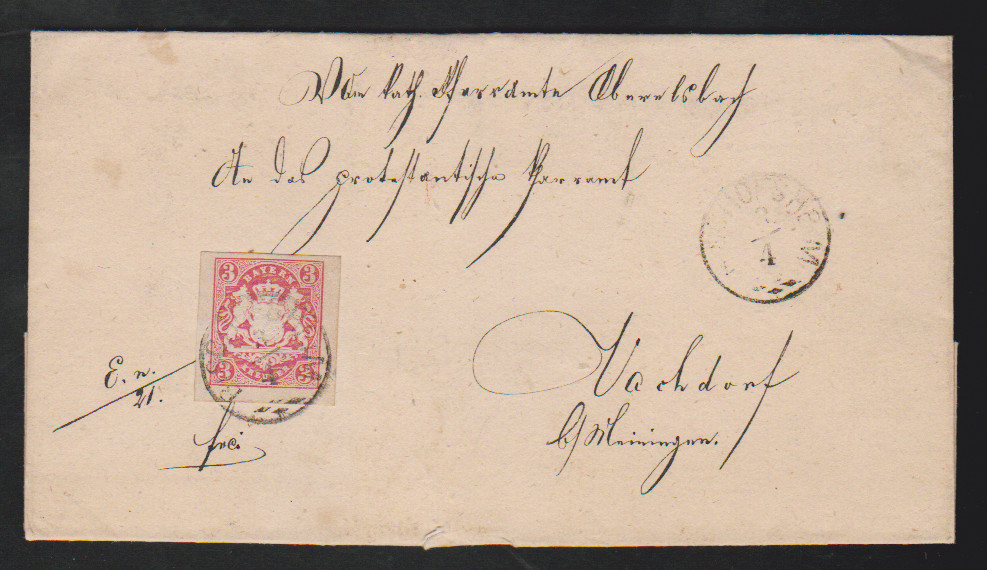 Vom kath. Pfarramte Oberelsbach
An das protestantische Pfarramt
3 BAYERN 3
3 KREUZER 3
4
E. n.
21.
frei
Vachdorf
b/Meiningen.